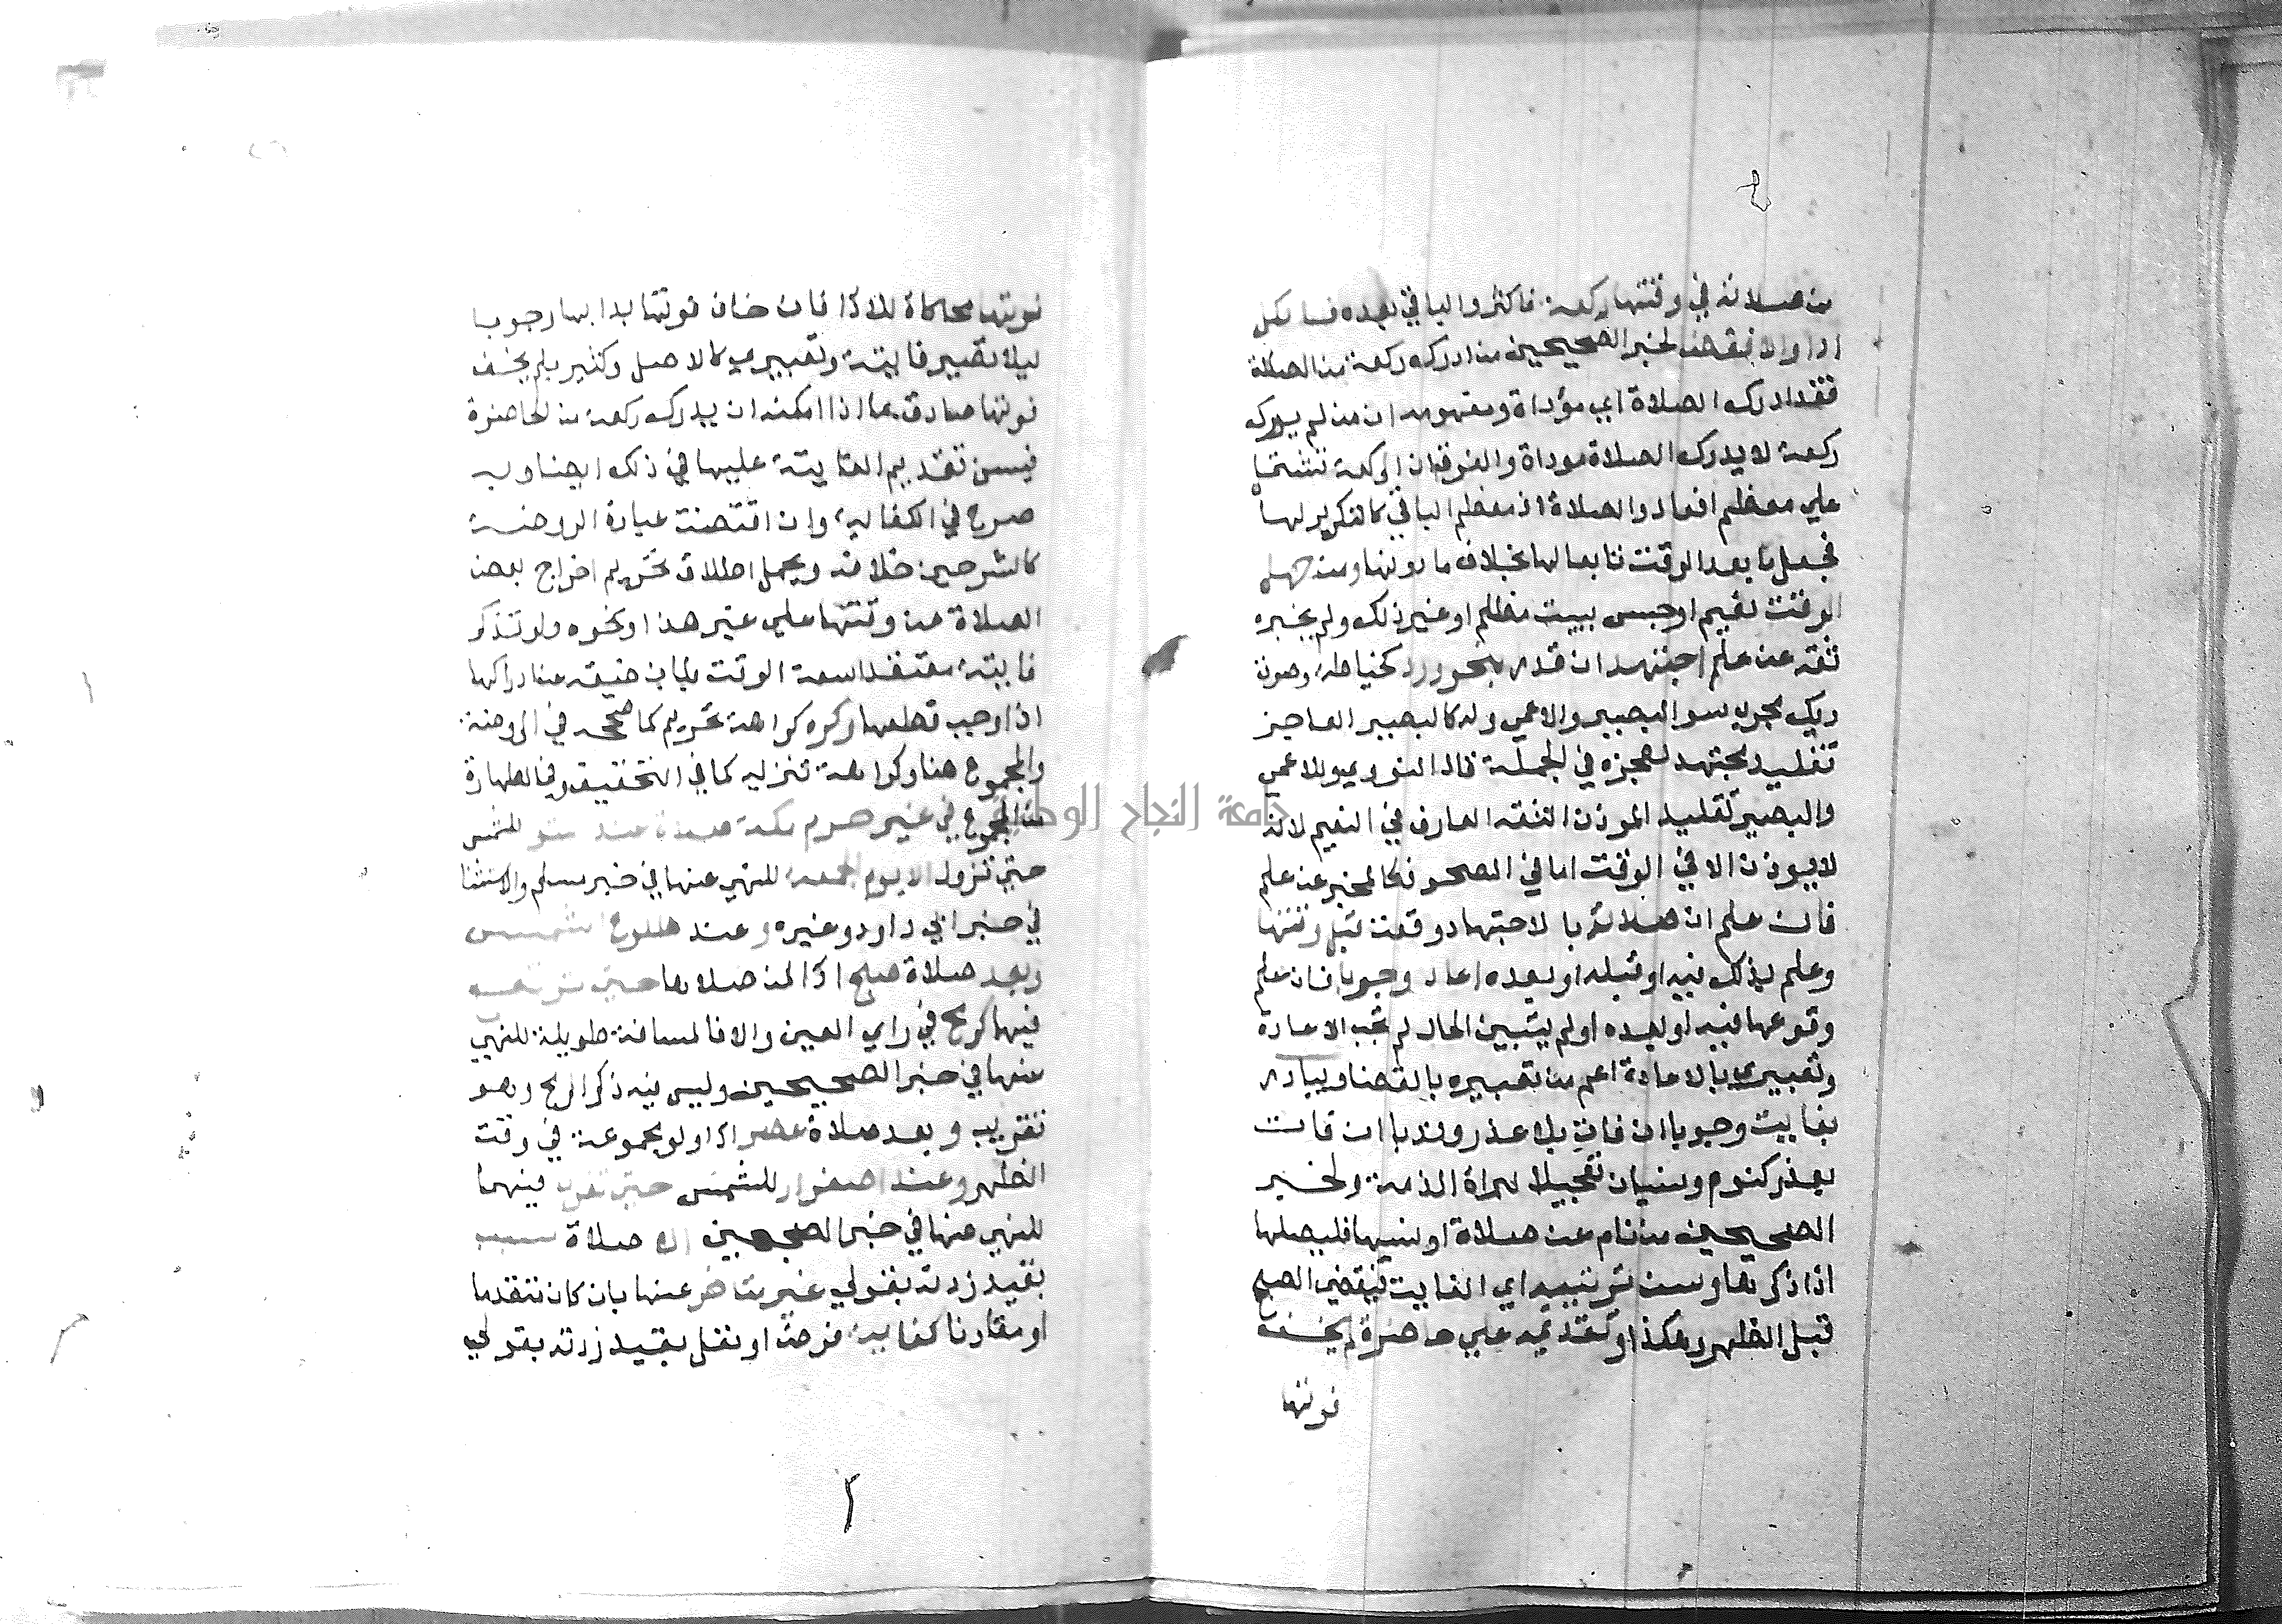 من صلاته في وقتها ركعة فاكثر والباقي بعده فالكل
ادا والا فقضا لخبر الصحيحين من ادرك ركعة من الصلاة
فقد ادرك الصلاة اي مؤداة ومفهومه ان من لم يدرك
ركعة لا يدرك الصلاة موداة والفرق ان الركعة تشتمل
علي معظم افعال الصلاة اذ معظم الباقي كالتكرير لها
فجعل ما بعد الوقت تابعا لها بخلاف ما دونها ومن جهل
الوقت لغيم او حبس ببيت مظلم او غير ذلك ولم يخبره
ثقة عن علم اجتهد ان قدر بنحو ورد كخياطة وصوت
ديك مجرب سوا البصير والاعمي وله كالبصير العاجز
تقليد مجتهد لعجزه في الجملة قال النووي وللاعمي
والبصير تقليد الموذن الثقة العارف في الغيم لانه
لا يوذن الا في الوقت اما في الصحو فكالمخبر عن علم
فان علم ان صلاته بالاجتهاد وقعت قبل وقتها
وعلم بذلك فيه او قبله او بعده اعاد وجوبا فان علم
وقوعها فيه او بعده او لم يتبين الحال لم تجب الاعادة
وتعبيري بالاعادة اعم من تعبيره بالقضا ويبادر
بفايت وجوبا ان فات بلا عذر وندبا ان فات
بعذر كنوم ونسيان تعجيلا لبراة الذمة ولخبر
الصحيحين من نام عن صلاة او نسيها فليصلها
اذا ذكرها وسن ترتيبه اي الفايت فيقضي الصبح
قبل الظهر وهكذا وتقديمه علي حاضرة لم يخف
فوتها
فوتها محاكاة للاداء فان خاف فوتها بدا بها وجوبا
ليلا تصير فايتة وتعبيري كالاصل وكثير بلم يخف
فوتها صادق بما اذا امكنه ان يدرك ركعة من الحاضرة
فيسن تقديم الفايتة عليها في ذلك ايضا وبه
صرح في الكفاية وان اقتضت عبارة الروضة
كالشرحين خلافه ويحمل اطلاق تحريم اخراج بعض
الصلاة عن وقتها علي غير هذا ونحوه ولو تذكر
فايتة معتقدا سعة الوقت فبان ضيقه عن ادراكها
اذا وجب قطعها وكره كراهة تحريم كما صححه في الروضة
والمجموع هنا وكراهة تنزيه كما في التحقيق وفي الطهارة
من المجموع في غير حرم مكة صلاة عند ستو للشمس
حتي تزول الا يوم الجمعة للنهي عنها في خبر مسلم والاستثنا
في خبر ابي داود وغيره وعند طلوع الشمس
وبعد صلاة صبح اذا لمن صلاها حتي ترتفع
فيها كرمح في راي العين والا فالمسافة طويلة للنهي
عنها في خبر الصحيحين وليس فيه ذكر الرمح وهو
تقريب وبعد صلاة عصر اذا ولو مجموعة في وقت
الظهر وعند اصفرار للشمس حتي تغرب فيهما
للنهي عنها في خبر الصحيحين الا صلاة لسبب
بقيد زدته بقولي غير متاخر عنها بان كان متقدما
او مقارنا كفايتة فرض او نفل بقيد زدته بقولي